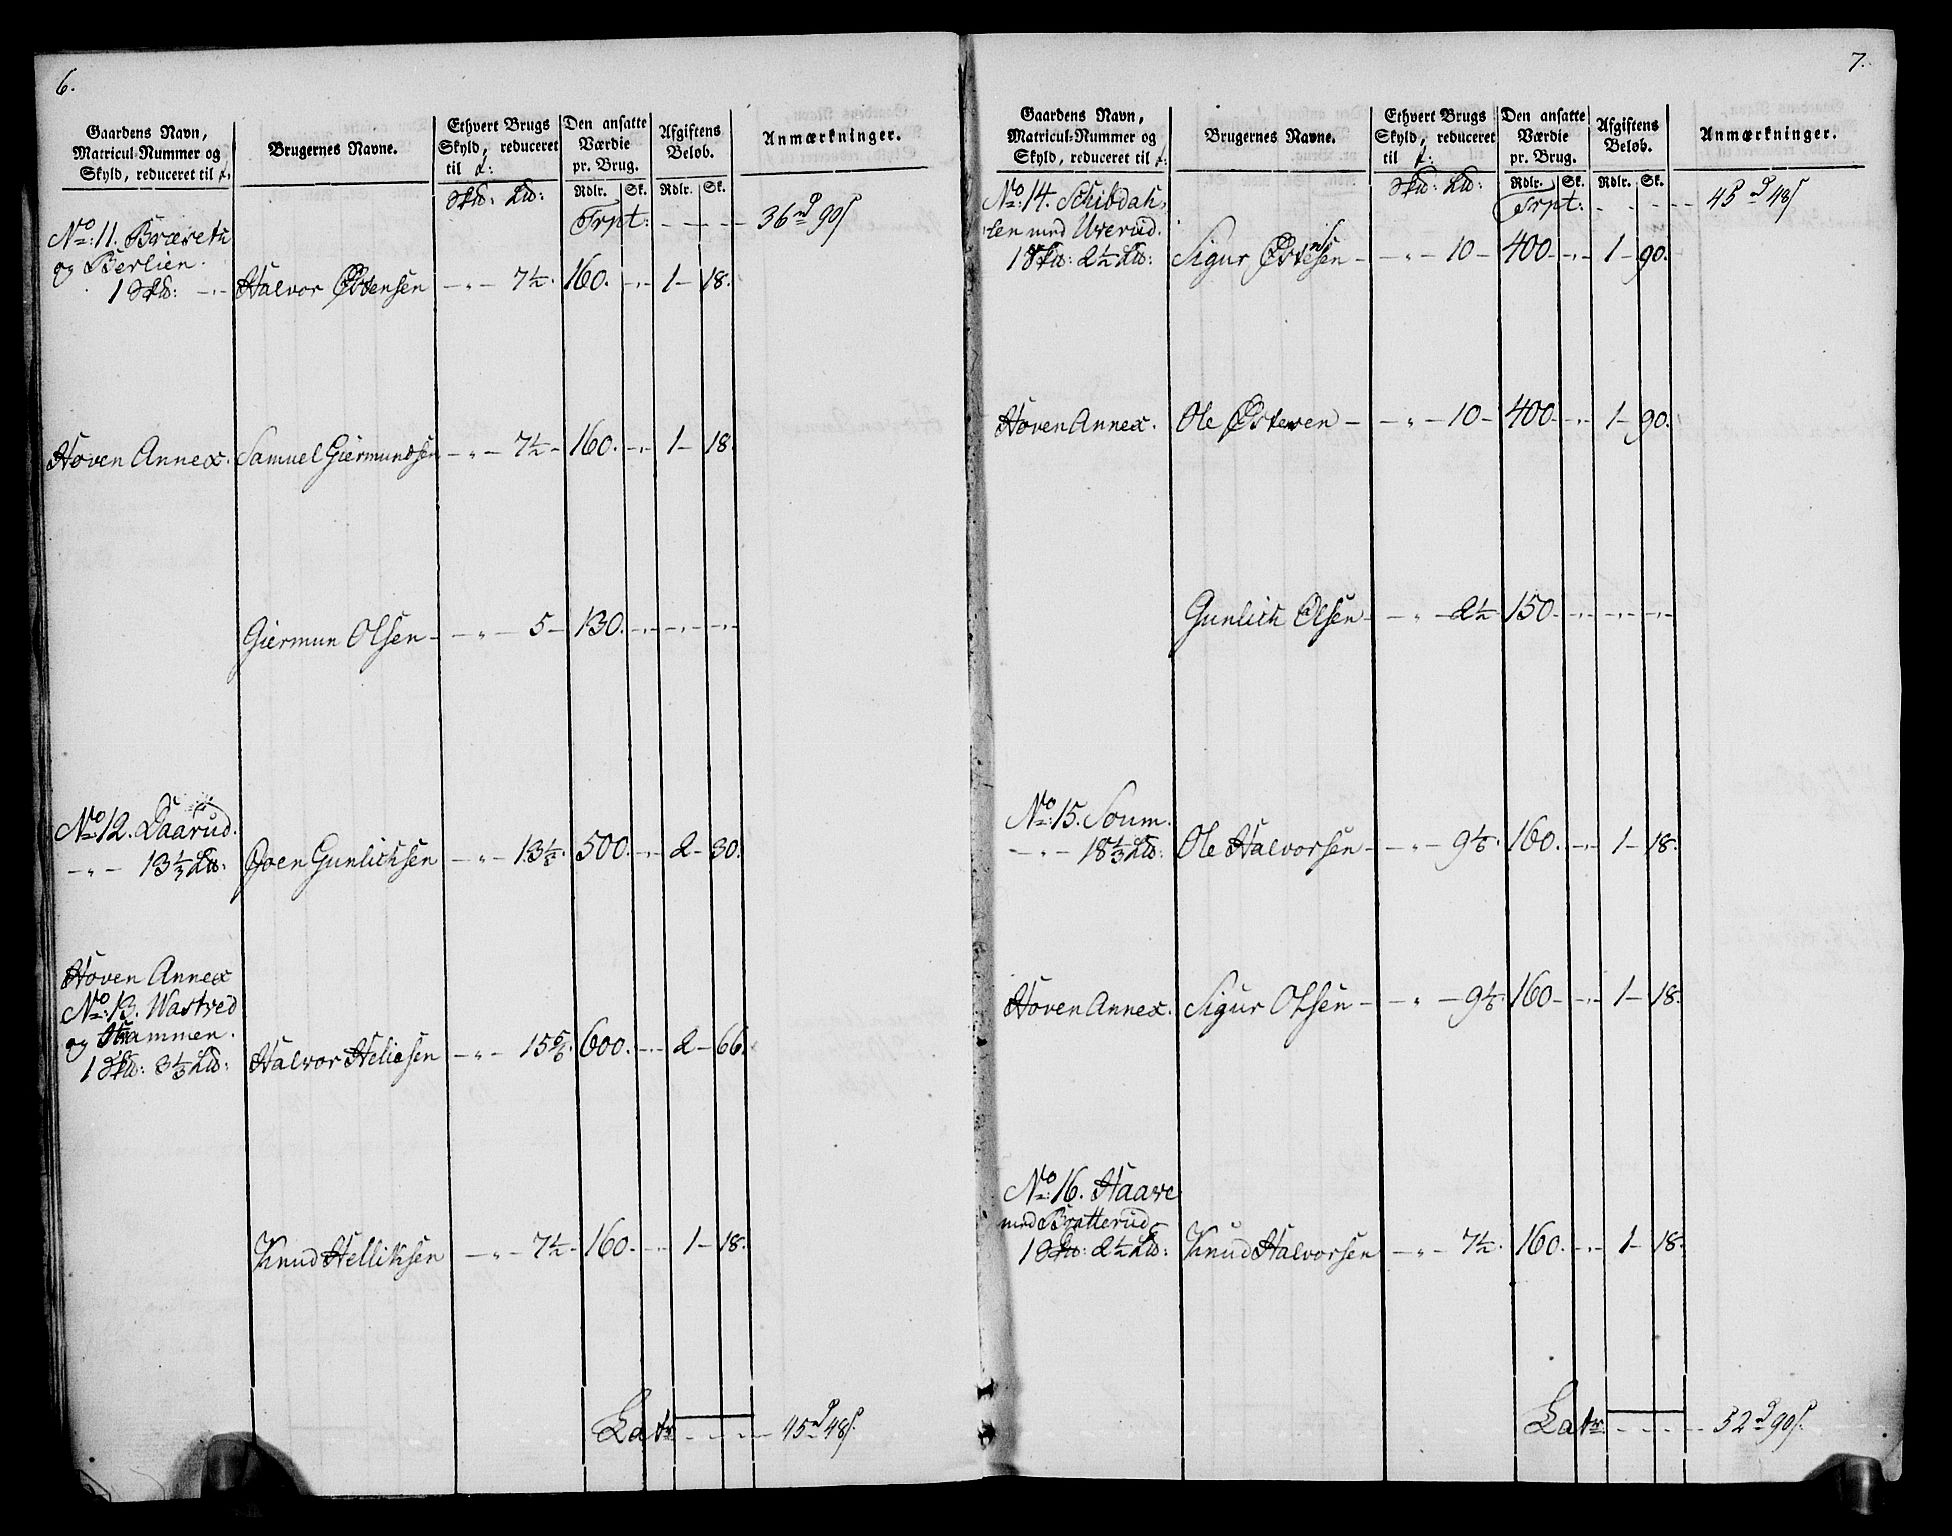 6.
Gaardens Navn, Matricul-Nummer og Skyld, reduceret til
Brugernes Navne.
Ethvert Brugs Skyld, reduceret til
Den ansatte Værdie pr. Brug.
Afgiftens Beløb.
Anmærkninger.
Rdlr. Sk. Rdlr. Sk.
Trpt: - - - - 36 rd 90 s
No: 11. Bræreth
og Berlien.
1 Skd: - " - Halvor Østensen - " - 7½. 160. - " - 1 - 18.
Hoven Annex. Samuel Giermundsen - " - 7½ - 160. - " - 1 - 18.
Giermun Olsen - - " - 5 - 130. - " - - " - - " -
No: 12. Daarud.
- " - 13⅓ Ld: Joen Gunlichsen - " - 13⅓. 500. - " - 2 - 30.
Hoven Annex
No: 13. Wastved
og Stammen.
1 Skd: 3⅓ Ld: Halvor Heliesen - " - 15⅚. 600. - " - 2 - 66.
Knud Helliksen - " - 7½ - 160. - " - 1 - 18.
Latr - - - - 45 rd 48 s.
7.
Gaardens Navn, Matricul-Nummer og Skyld, reduceret til
Brugernes Navne.
Ethvert Brugs Skyld, reduceret til
Den ansatte Værdie pr. Brug.
Afgiftens Beløb.
Anmærkninger.
Rdlr. Sk. Rdlr. Sk.
Trpt: - - - - 45 rd 48 s
No: 14. Schibdah-
len med Urerud.
1 Skd: 2½ Ld: Sigur Østensen - - " - 10 - 400 - " - 1 - 90.
Hoven Annex. Ole Østesen - - " - 10 - 400 - " - 1 - 90.
Gunlich Olsen - - " - 2½ 150 - " - - " - - " -
No: 15. Soum.
- " - 18⅓ Ld: Ole Halvorsen - - " - 9⅙. 160. - " - 1 - 18.
Hoven Annex. Sigur Olsen - - " - 9⅙. 160 - " - 1 - 18.
No: 16. Haave
med Bratterud
1 Skd: 2½ Ld: Knud Halvorsen - " - 7½. 160. - " - 1 - 18.
Latr: - - - - 52 rd 90 s.